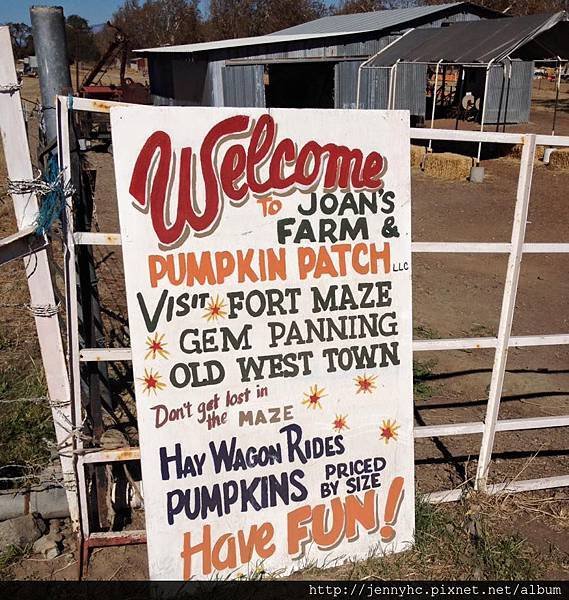 Welcome
TO JOAN'S
FARM &
PUMPKIN PATCH LLC
VISIT FORT MAZE
GEM PANNING
OLD WEST TOWN
Don't get lost in
the MAZE
HAY WAGON RIDES
PUMPKINS PRICED
BY SIZE
Have FUN!
http://jennyhc.pixnet.net/album